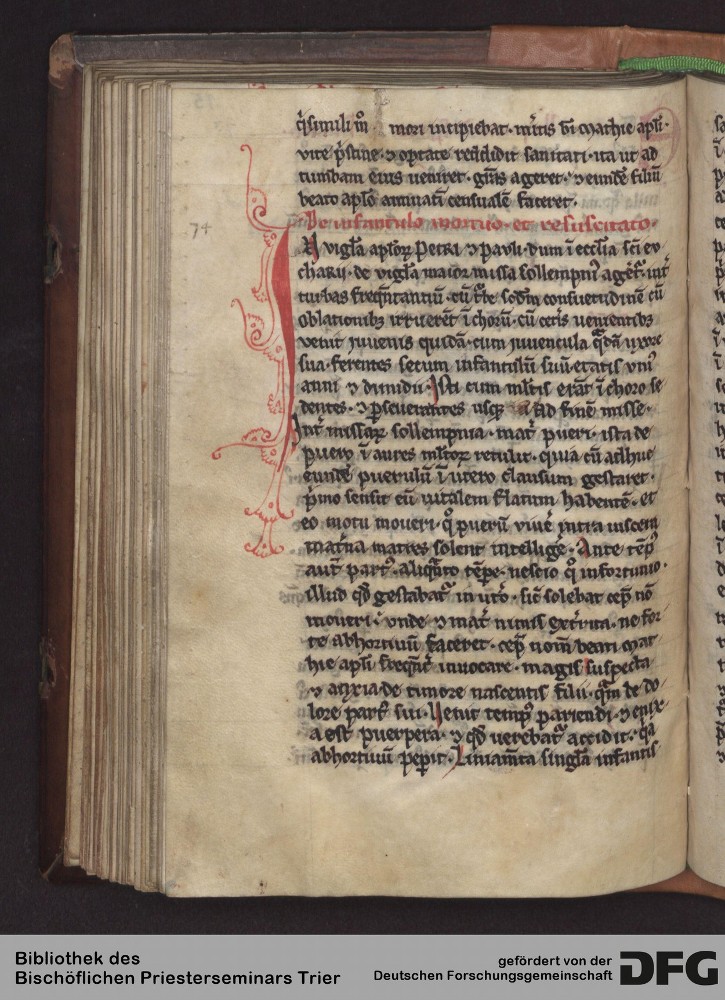 q̄simili mō mori incipiebat. mītis bī mathie apłi.
vite p̄stine. ⁊ optate reddidit sanitati. ita ut ad
tumbam eius veniret. gr̄as ageret. ⁊ eundē filiū
beato apłō annuatī censualē faceret.
De infantulo mortuo. et resuscitato.
74
IN vigła apłoꝝ Petri ⁊ Pauli. dum ī ecclīa scī eu
charii. de vigła maior missa sollempnit̾ agēt̾. int̾
turbas freq̄ntantiū. cū
oblationibꝫ irruerēt ī chorū. cū cet̾is venientibꝫ
venit iuvenis quidā. cum iuvencula q̄dā uxore
sua. ferentes secum infantulū suū. etatis vni᾽
anni ⁊ dimidii. Isti cum ml̄tis erāt ī choro se
dentes. ⁊ ꝑseuerantes usqꝫ ad finē misse.
Int̾ missaꝝ sollempnia. mat̾ pueri. ista de
puero ī aures ml̄toꝝ retulit. quia cū adhuc
eundē puerulū ī utero clausum gestaret.
p̄mo sensit eū vitalem flatum habentē. et
eo motu moueri. q̊ puerū viuē intra viscera
mat̾na matres solent intellige̾. Ante temp᾽
aut̄ part᾽. aliq̄nto tēpe. nescio q̊ infortunio.
illud qd̄ gestabat᾽ in ut̾o. sic̄ solebat cep̄ nō
moueri. unde ⁊ mat̾ nimis ext̾rita. ne for
te abhortiuū faceret. cep̄ nom̄ beati mat
hie apłi freq̄nt̾ inuocare. magis suspecta
⁊ anxia. de timore nascentis filii. q̄m de do
lore part᾽ sui. Venit temp᾽ pariendi. ⁊ enix
a est puerpera. ⁊ qd̄ verebat᾽ accidit. q̄a
abhortiuū pepit. Liniam̄ta singła infantis
Bibliothek des
Bischöflichen Priesterseminars Trier
gefördert von der
Deutschen Forschungsgemeinschaft
DFG